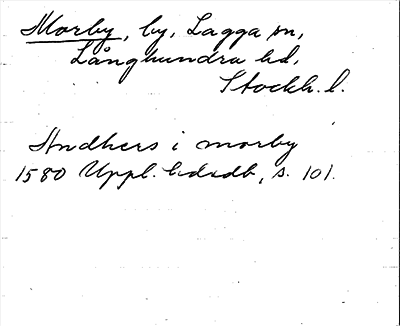 Morby, by, Lagga sn,
Långhundra hd,
Stockh. l.
Andhers i morby
1580 Uppl. hdrdb, s. 101.